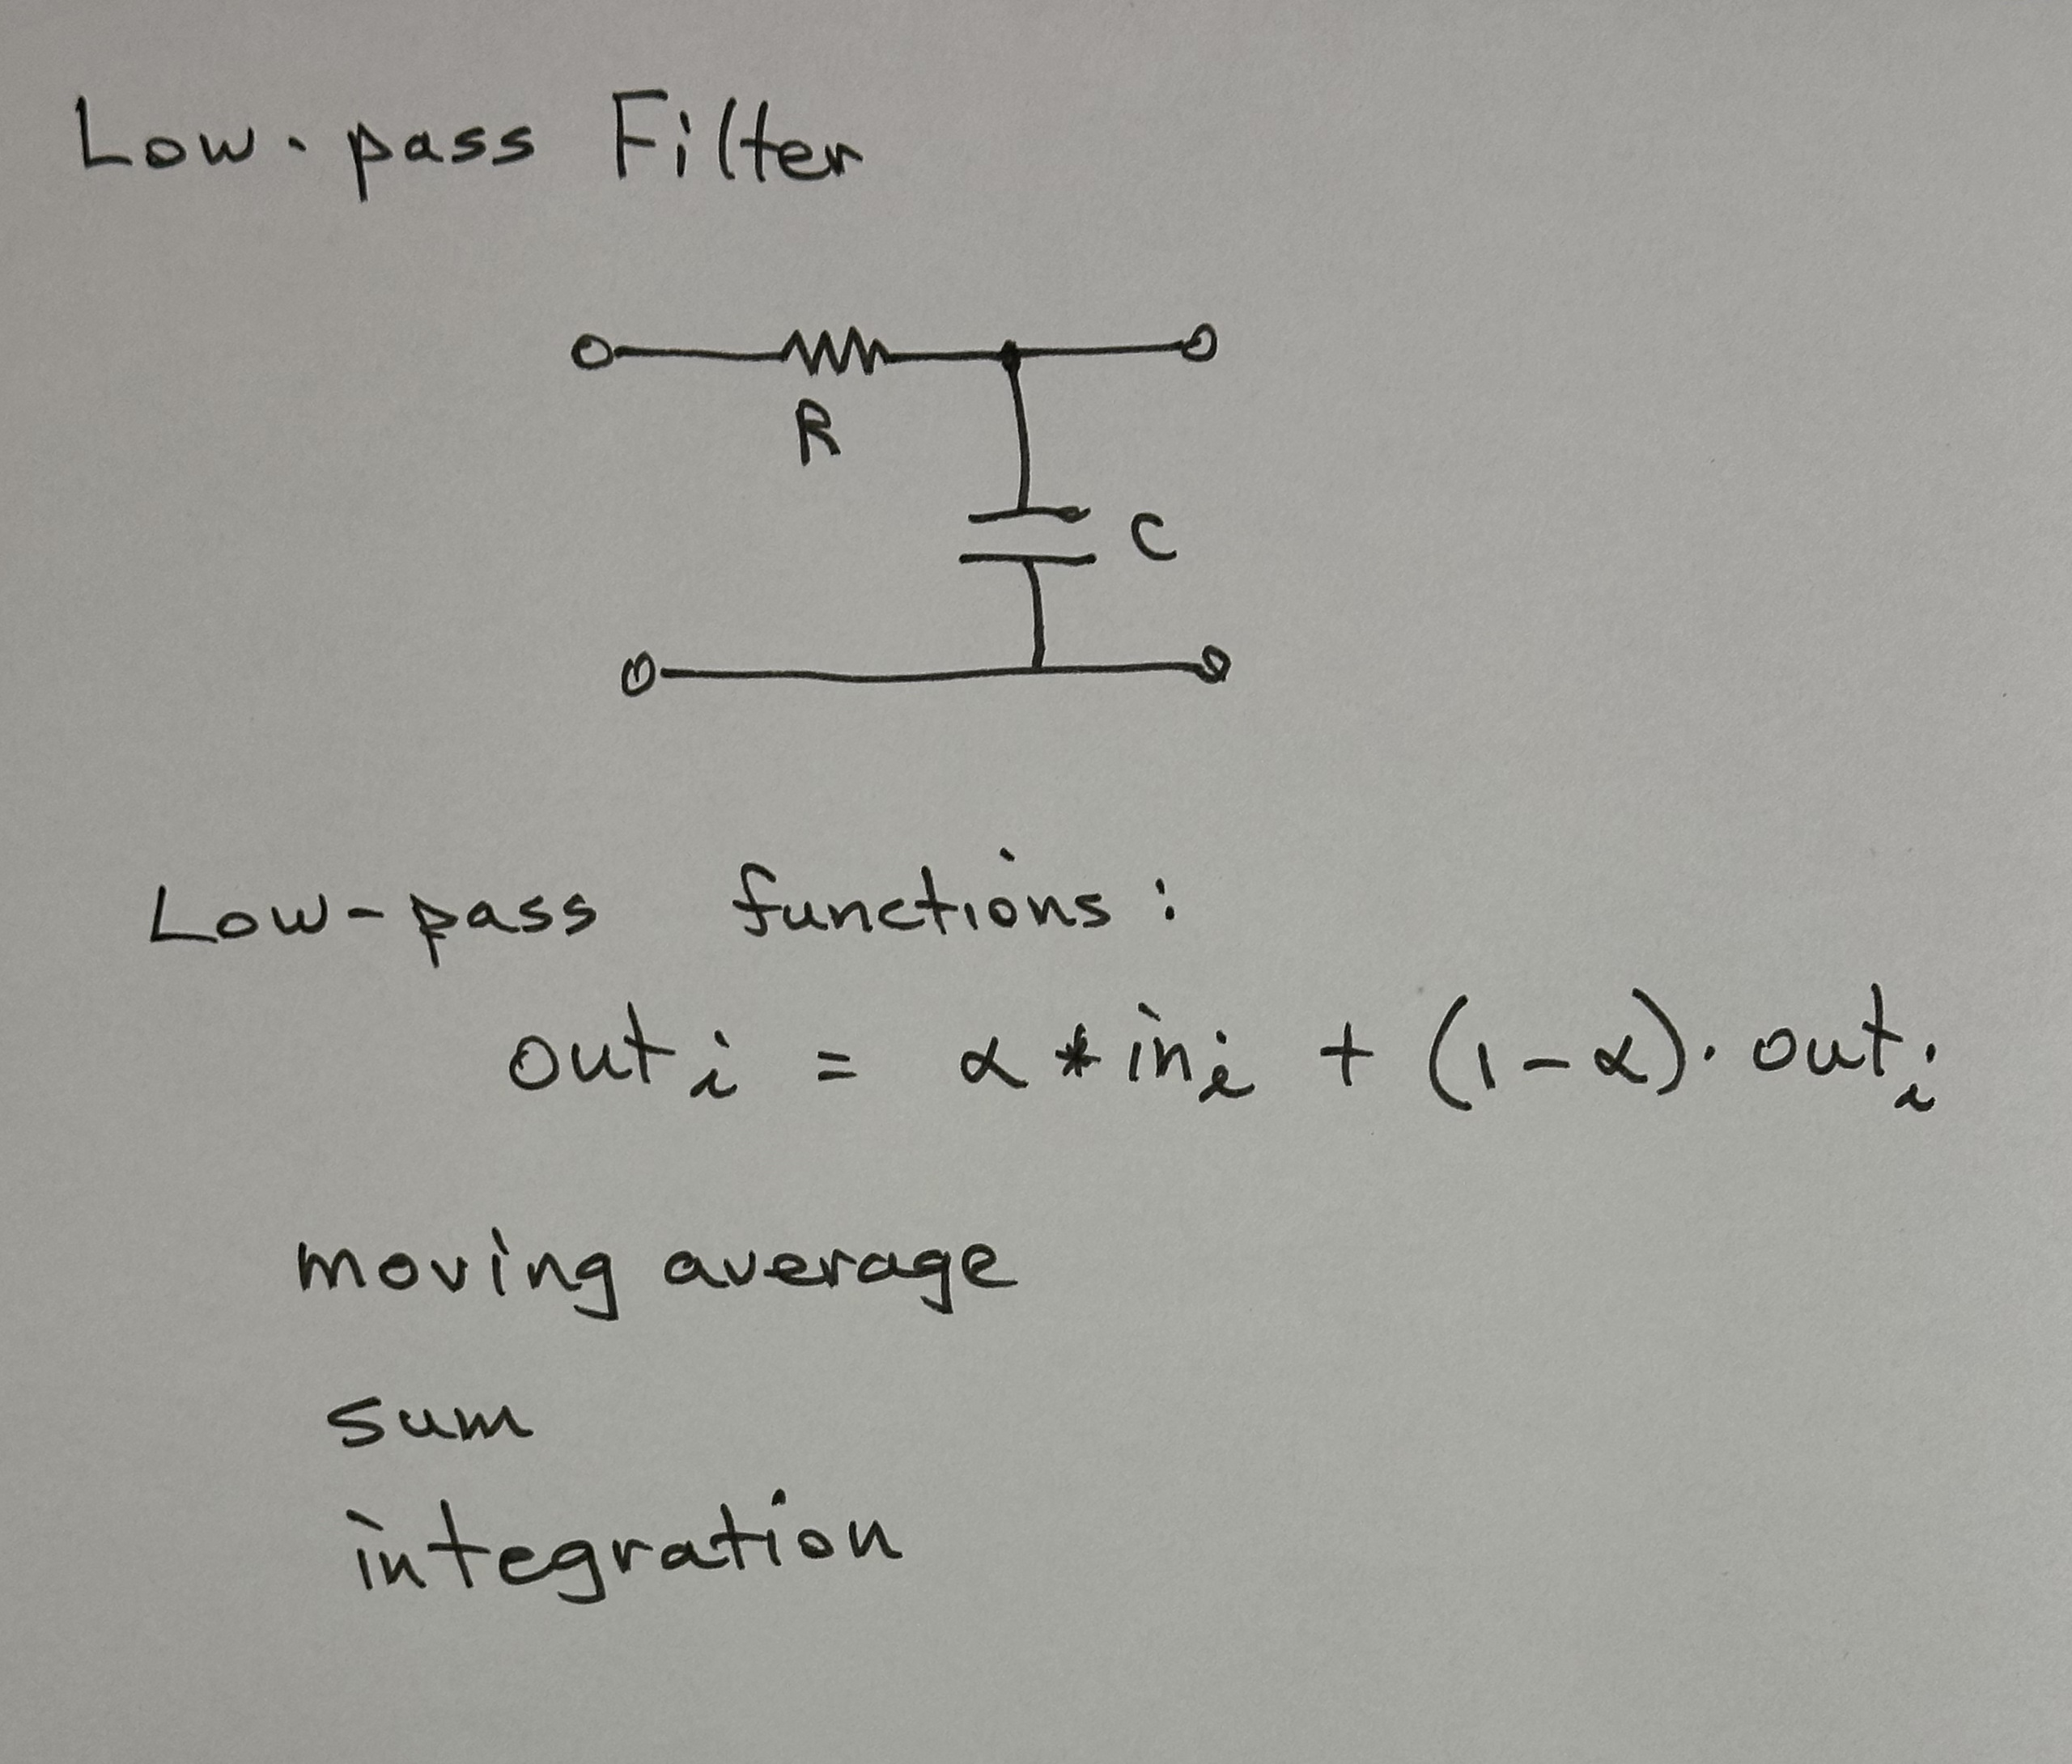 Low-pass Filter
R
C
Low-pass functions:
out i = α * in i + (1-α)· out i
moving average
sum
integration